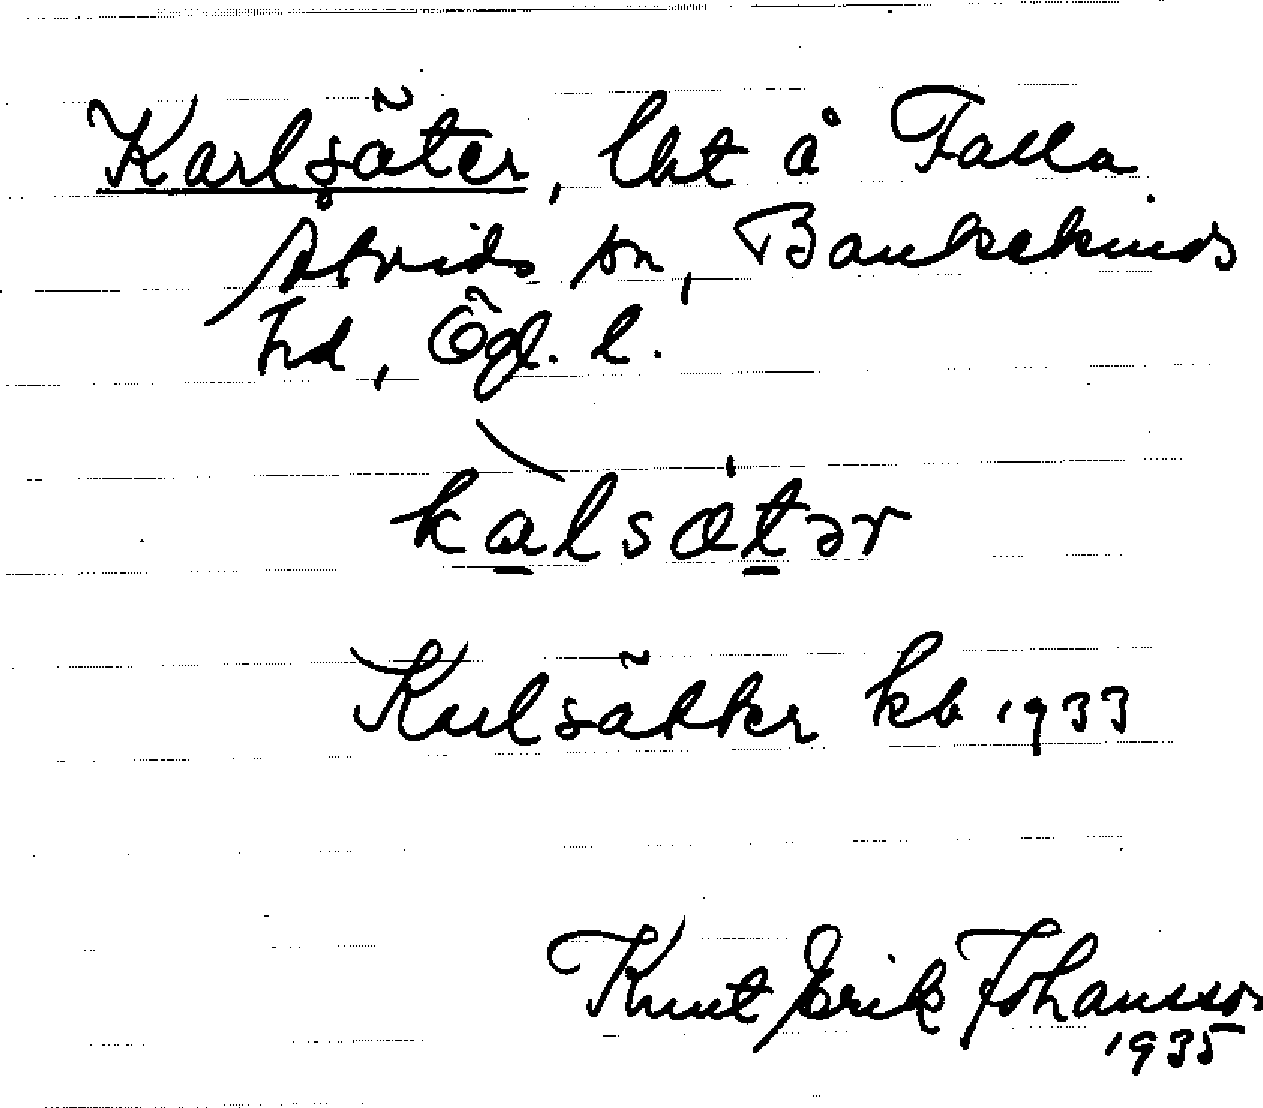 Karlsäter, lht å Falla
Åtvids sn, Bankekinds
hd, Ögl. l.
kalsätər
Karlsätter kb 1933
Knut Erik Johansson
1935